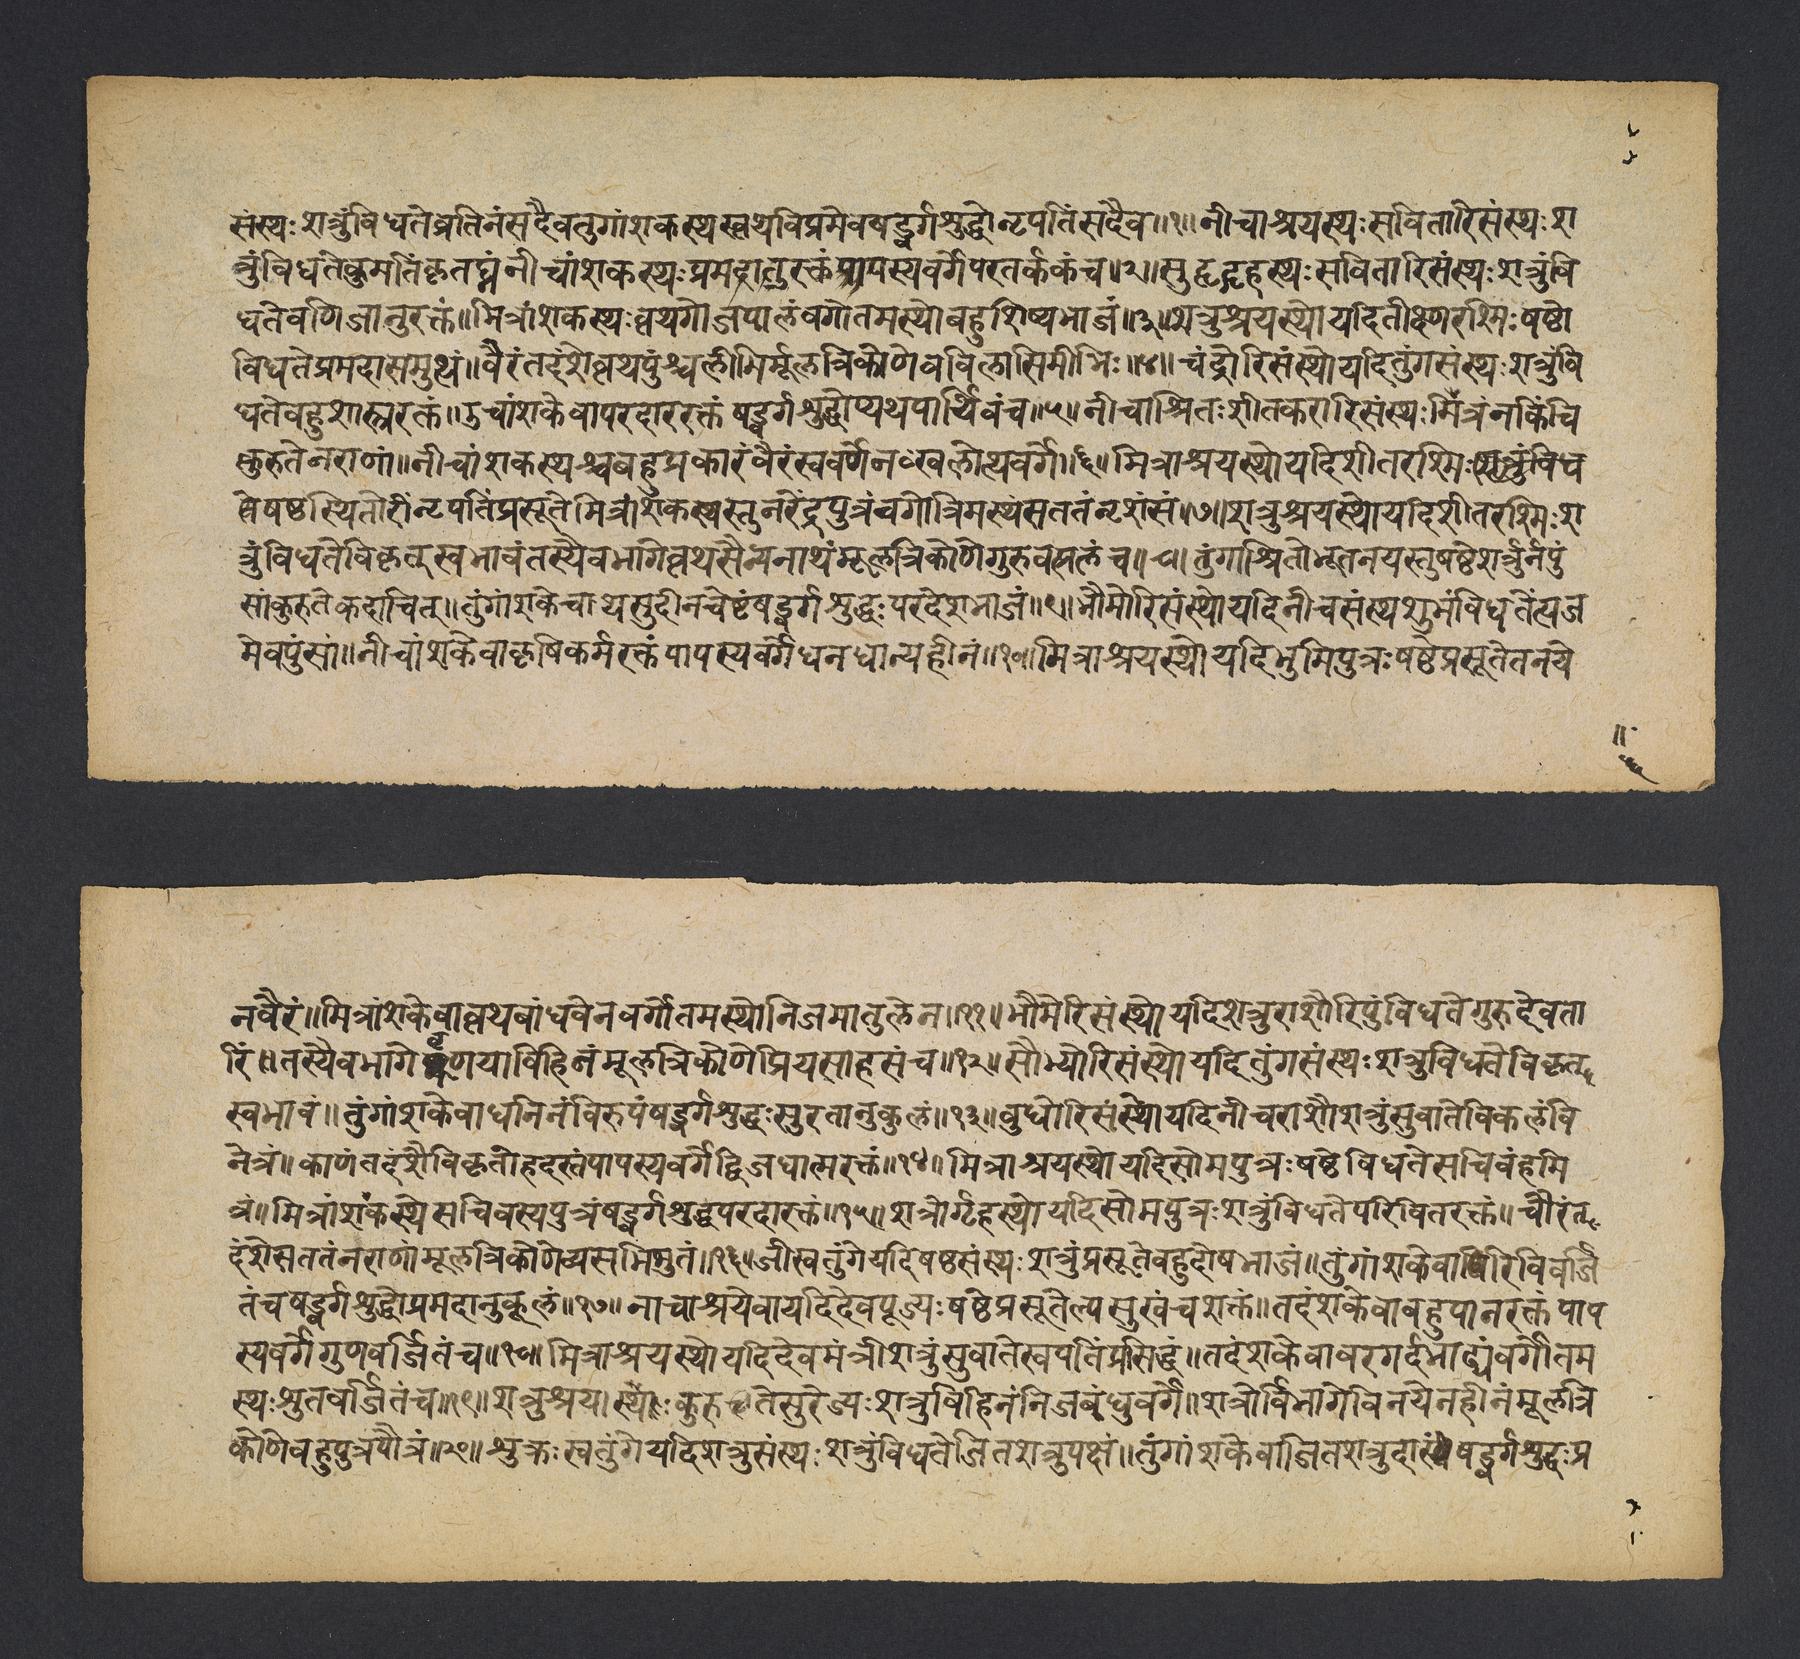 संस्थः शत्रुं विधते व्रतिनं सदैव तुगांशकस्थस्त्वथ विप्रमेव षड्वर्गशुद्धो नृपतिं सदैव ॥१॥ नीचाश्रयस्थः सवितारिसंस्थः श
त्रुं विधते कुमतिं कृतघ्नं नीचांशकस्थः प्रमदानुरक्तं पापस्य वर्गे परतर्ककं च ॥२॥ सुहृद्गृहस्थः सवितारिसंस्थः शत्रुं वि
धते वणिजानुरक्तं ॥ मित्रांशकस्थः त्वथ गोजपालं वर्गोतमस्थो बहुशिष्यभाजं ॥३॥ शत्रुश्रयस्थो यदि तीक्ष्णरश्मिः षष्टो
विधते प्रमदासमुत्थं ॥ वैरं तदंशे त्वथ पुंश्चलीभिर्मूलत्रिकोणे वविलासिमीभिः ॥४॥ चंद्रोरिसंस्थो यदि तुंगसंस्थः शत्रुं वि
धते बहुशास्त्ररक्तं ॥ उचांशके वापरदाररक्तं षड्वर्गशुद्धोप्यथ पार्थिवं च ॥५॥ नीचाश्रितः शीतकरारिसंस्थः मित्रं न किंचि
त्कुरुते नराणां ॥ नीचांशकस्थश्च बहुप्रकारं वैरं स्ववर्णेन खलोत्थवर्गे ॥६॥ मित्राश्रयस्थो यदि शीतरश्मिः शत्रुं विध
त्ते षष्ठस्थितो रीं नृपतिं प्रसूते मित्रांशकस्थस्तु नरेंद्रपुत्रं वगोत्रिमस्थं सततं नृशंसं ॥७॥ शत्रुश्रयस्थो यदि शीतरश्मिः श
त्रुं विधते विकृत्स्वभावं तस्यैव भागे त्वथ सैन्यनाथं मूलत्रिकोणे गुरुवत्सलं च ॥८॥ तुंगाश्रितो भूतनयस्तु षष्ठे शत्रुर्न पुं
सां कुरुते कदाचित् ॥ तुंगांशके चाथ सुदीनचेष्टं षड्वर्गशुद्धः परदेशभाजं ॥९॥ भौमोरिसंस्थो यदि नीचसंस्थ शुभं विधते त्यज
मेव पुंसां ॥ नीचांशके वा कृषिकर्मरक्तं पापस्य वर्गे धनधान्यहीनं ॥१०॥ मित्राश्रयस्थो यदि भुमिपुत्रः षष्ठे प्रसूते तनये
न वैरं ॥ मित्रांशके वा त्वथ बांधवेन वर्गोतमस्थो निजमातुलेन ॥११॥ भौमेरिसंस्थो यदि शत्रुराशौ रिपुं विधते गुरुदेवता
रिं ॥ तस्यैव भागे घृणया विहिनं मूलत्रिकोणे प्रियसाहसं च ॥१२॥ सौम्योरिसंस्थो यदि तुंगसंस्थः शत्रु विधते विकृत्
स्वभावं ॥ तुंगांशके वा धनिनं विरुपं षड्वर्गशुद्धः सुरतानुकुलं ॥१३॥ बुधोरिसंस्थो यदि नीचराशौ शत्रुं सुवाते विकलं वि
नेत्रं ॥ काणं तदंशौ विकृतो हदस्तं पापस्य वर्गे द्विजघात्मरक्तं ॥१४॥ मित्राश्रयस्थो यदि सोमपुत्रः षष्ठे विधते सचिवं हमि
त्रं ॥ मित्रांशकस्थे सचिवस्य पुत्रं षड्वर्गशुद्ध परदारक्तं ॥१५॥ शत्रोर्गृहस्थो यदि सोमपुत्रः शत्रुं विधते परिषितरक्तं ॥ चौरं त
दंशे सततं नराणां मूलत्रिकोणे व्यसभिसुतं ॥१६॥ जीस्वतुंगे यदि षष्ठसंस्थः शत्रुं प्रसूते बहुदोषभाजं ॥ तुंगांशके वा परिविवर्जि
तं च षड्वर्गशुद्धो प्रमदानुकूलं ॥१७॥ नाचाश्रये वा यदि देवपूज्यः षष्ठे प्रसूतेल्पसुखं च शक्तं ॥ तदंशके वा बहुपानरक्तं पाप
स्य वर्गे गुणवर्जितं च ॥१८॥ मित्राश्रयस्थो यदि देवमंत्री शत्रुं सुवाते स्वपतिं प्रसिद्धं ॥ तदंशके वा वरगर्दभाढ्यं वर्गोतम
स्थः श्रुतवर्जितं च ॥१९॥ शत्रुश्रयास्थोः कुरुते सुरेज्यः शत्रु विहिनं निजबंधुवर्गे ॥ शत्रोर्विभागे विनयेन हीनं मूलत्रि
कोणे बहुपुत्रपौत्रं ॥२०॥ शुक्रः स्वतुंगे यदि शत्रुसंस्थः शत्रुं विधते जितशत्रुपक्षं ॥ तुंगांशके वा जितशत्रुदास्यं षड्वर्गशुद्धः प्र